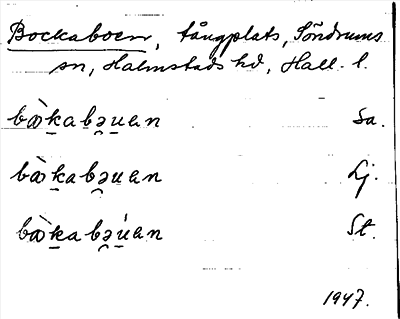 Bockaboen, tångplats, Söndrums
sn, Halmstads hd, Hall. l.
bɷ̀ḵabə̯u̱an Sa.
bɷ̀ḵabə̯u̱an Lj.
bɷ̀ḵabə̯ú̱an St.
1947.